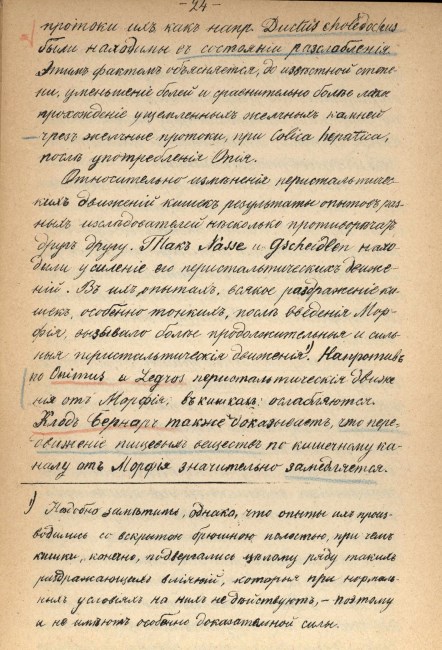 - 24 -
протоки ихъ какъ напр. Ductus choledochus
были находимы въ состояніи разслабленія.
Этимъ фактомъ объясняется, до извѣстной степе-
ни, уменьшеніе болей и сравнительно болѣе легк
прохожденіе ущемленныхъ желчныхъ камней
чрезъ желчные протоки, при Colica hepatica,
послѣ употребленія Опія.
Относительно измѣненія перистальтичес-
кихъ движеній кишекъ результаты опытовъ раз-
ныхъ изслѣдователей нѣсколько противорѣчатъ
другъ другу. Такъ Nasse и Gscheidlen нахо-
дили усиленіе его перистальтическихъ движе-
ній. Въ ихъ опытахъ, всякое раздраженіе ки-
шекъ, особенно тонкихъ, послѣ введенія Мор-
фія, вызывало болѣе продолжительныя и силь-
ныя перистальтическія движенія 1). Напротивъ
по Onimus и Legros перистальтическія движе-
ния отъ Морфія, въ кишкахъ: ослабляются.
Клодъ Бернаръ также доказываетъ, что пере-
движеніе пищевыхъ веществъ по кишечному ка-
налу отъ Морфія значительно замедляется.
1) Надобно замѣтить, однако, что опыты ихъ произ-
водились со вскрытою брюшною полостью, при чемъ
кишки, конечно, подвергались цѣлому ряду такихъ
раздражающихъ вліяній, которыя при нормаль-
ныхъ условіяхъ на нихъ не дѣйствуютъ, - поэтому
и не имѣютъ особенно доказательной силы.